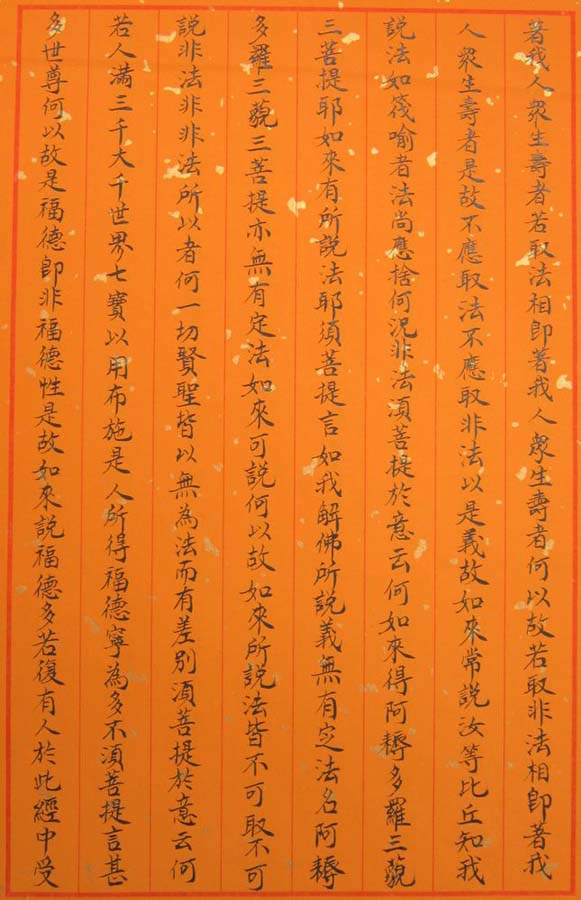 著我人衆生壽者若取法相即著我人衆生壽者何以故若取非法相即著我
人衆生壽者是故不應取法不應取非法以是義故如來常說汝等比丘知我
説法如筏喻者法尚應捨何況非法須菩提於意云何如來得阿耨多羅三藐
三菩提耶如來有所說法耶須菩提言如我解佛所說義無有定法名阿耨
多羅三藐三菩提亦無有定法如來可説何以故如來所説法皆不可取不可
說非法非非法所以者何一切賢聖皆以無為法而有差別須菩提於意云何
若人滿三千大千世界七寳以用布施是人所得福德寧為多不須菩提言甚
多世尊何以故是福德即非福德性是故如來說福德多若復有人於此經中受